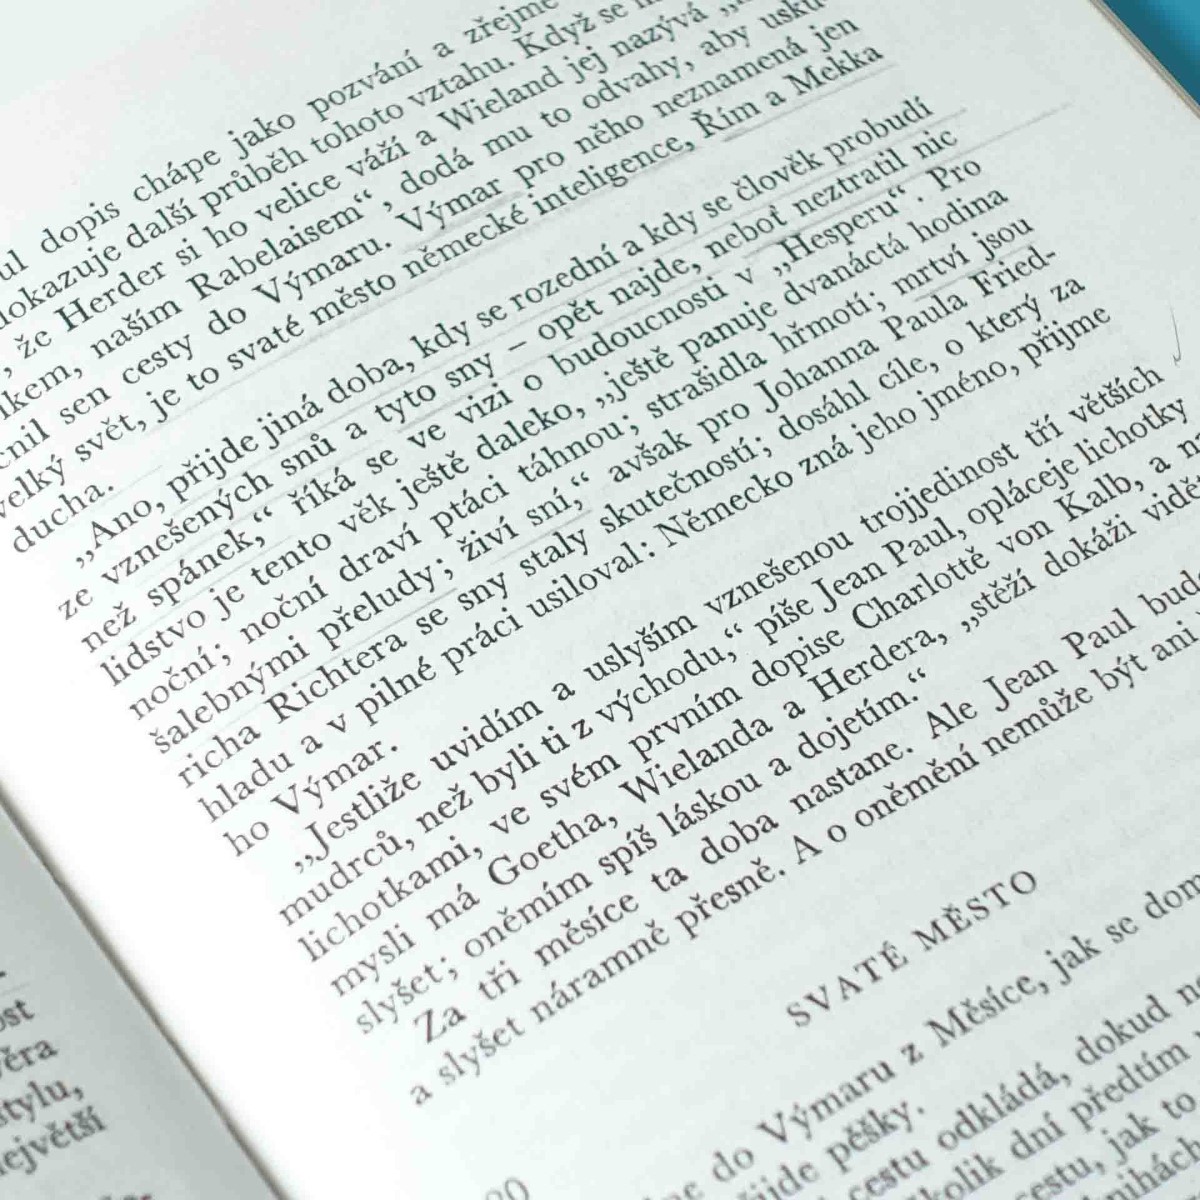 dopis chápe jako pozvání a zřejmě
dokazuje další průběh tohoto vztahu. Když se
, že Herder si ho velice váží a Wieland jej nazývá
naším Rabelaisem“, dodá mu to odvahy, aby
sen cesty do Výmaru. Výmar pro něho neznamená jen
velký svět, je to svaté město německé inteligence, Řím a Mekka
ducha.
„Ano, přijde jiná doba, kdy se rozední a kdy se člověk probudí
ze vznešených snů a tyto sny – opět najde, neboť neztratil nic
než spánek,“ říká se ve vizi o budoucnosti v „Hesperu“. Pro
lidstvo je tento věk ještě daleko, „ještě panuje dvanáctá hodina
noční; noční draví ptáci táhnou; strašidla hřmotí; mrtví jsou
šalebnými přeludy; živí sní,“ avšak pro Johanna Paula Fried-
richa Richtera se sny staly skutečností; dosáhl cíle, o který za
hladu a v pilné práci usiloval: Německo zná jeho jméno, přijme
ho Výmar.
„Jestliže uvidím a uslyším vznešenou trojjedinost tří větších
mudrců, než byli ti z východu,“ píše Jean Paul, opláceje lichotky
lichotkami, ve svém prvním dopise Charlottě von Kalb, a
mysli má Goetha, Wielanda a Herdera, „stěží dokáži
slyšet; oněmím spíš láskou a dojetím.“
Za tři měsíce ta doba nastane. Ale Jean Paul
a slyšet náramně přesně. A o oněmění nemůže být ani
SVATÉ MĚSTO
do Výmaru z Měsíce, jak se
pěšky.
cestu odkládá, dokud
dní předtím
cestu, jak to
stylu,
největší